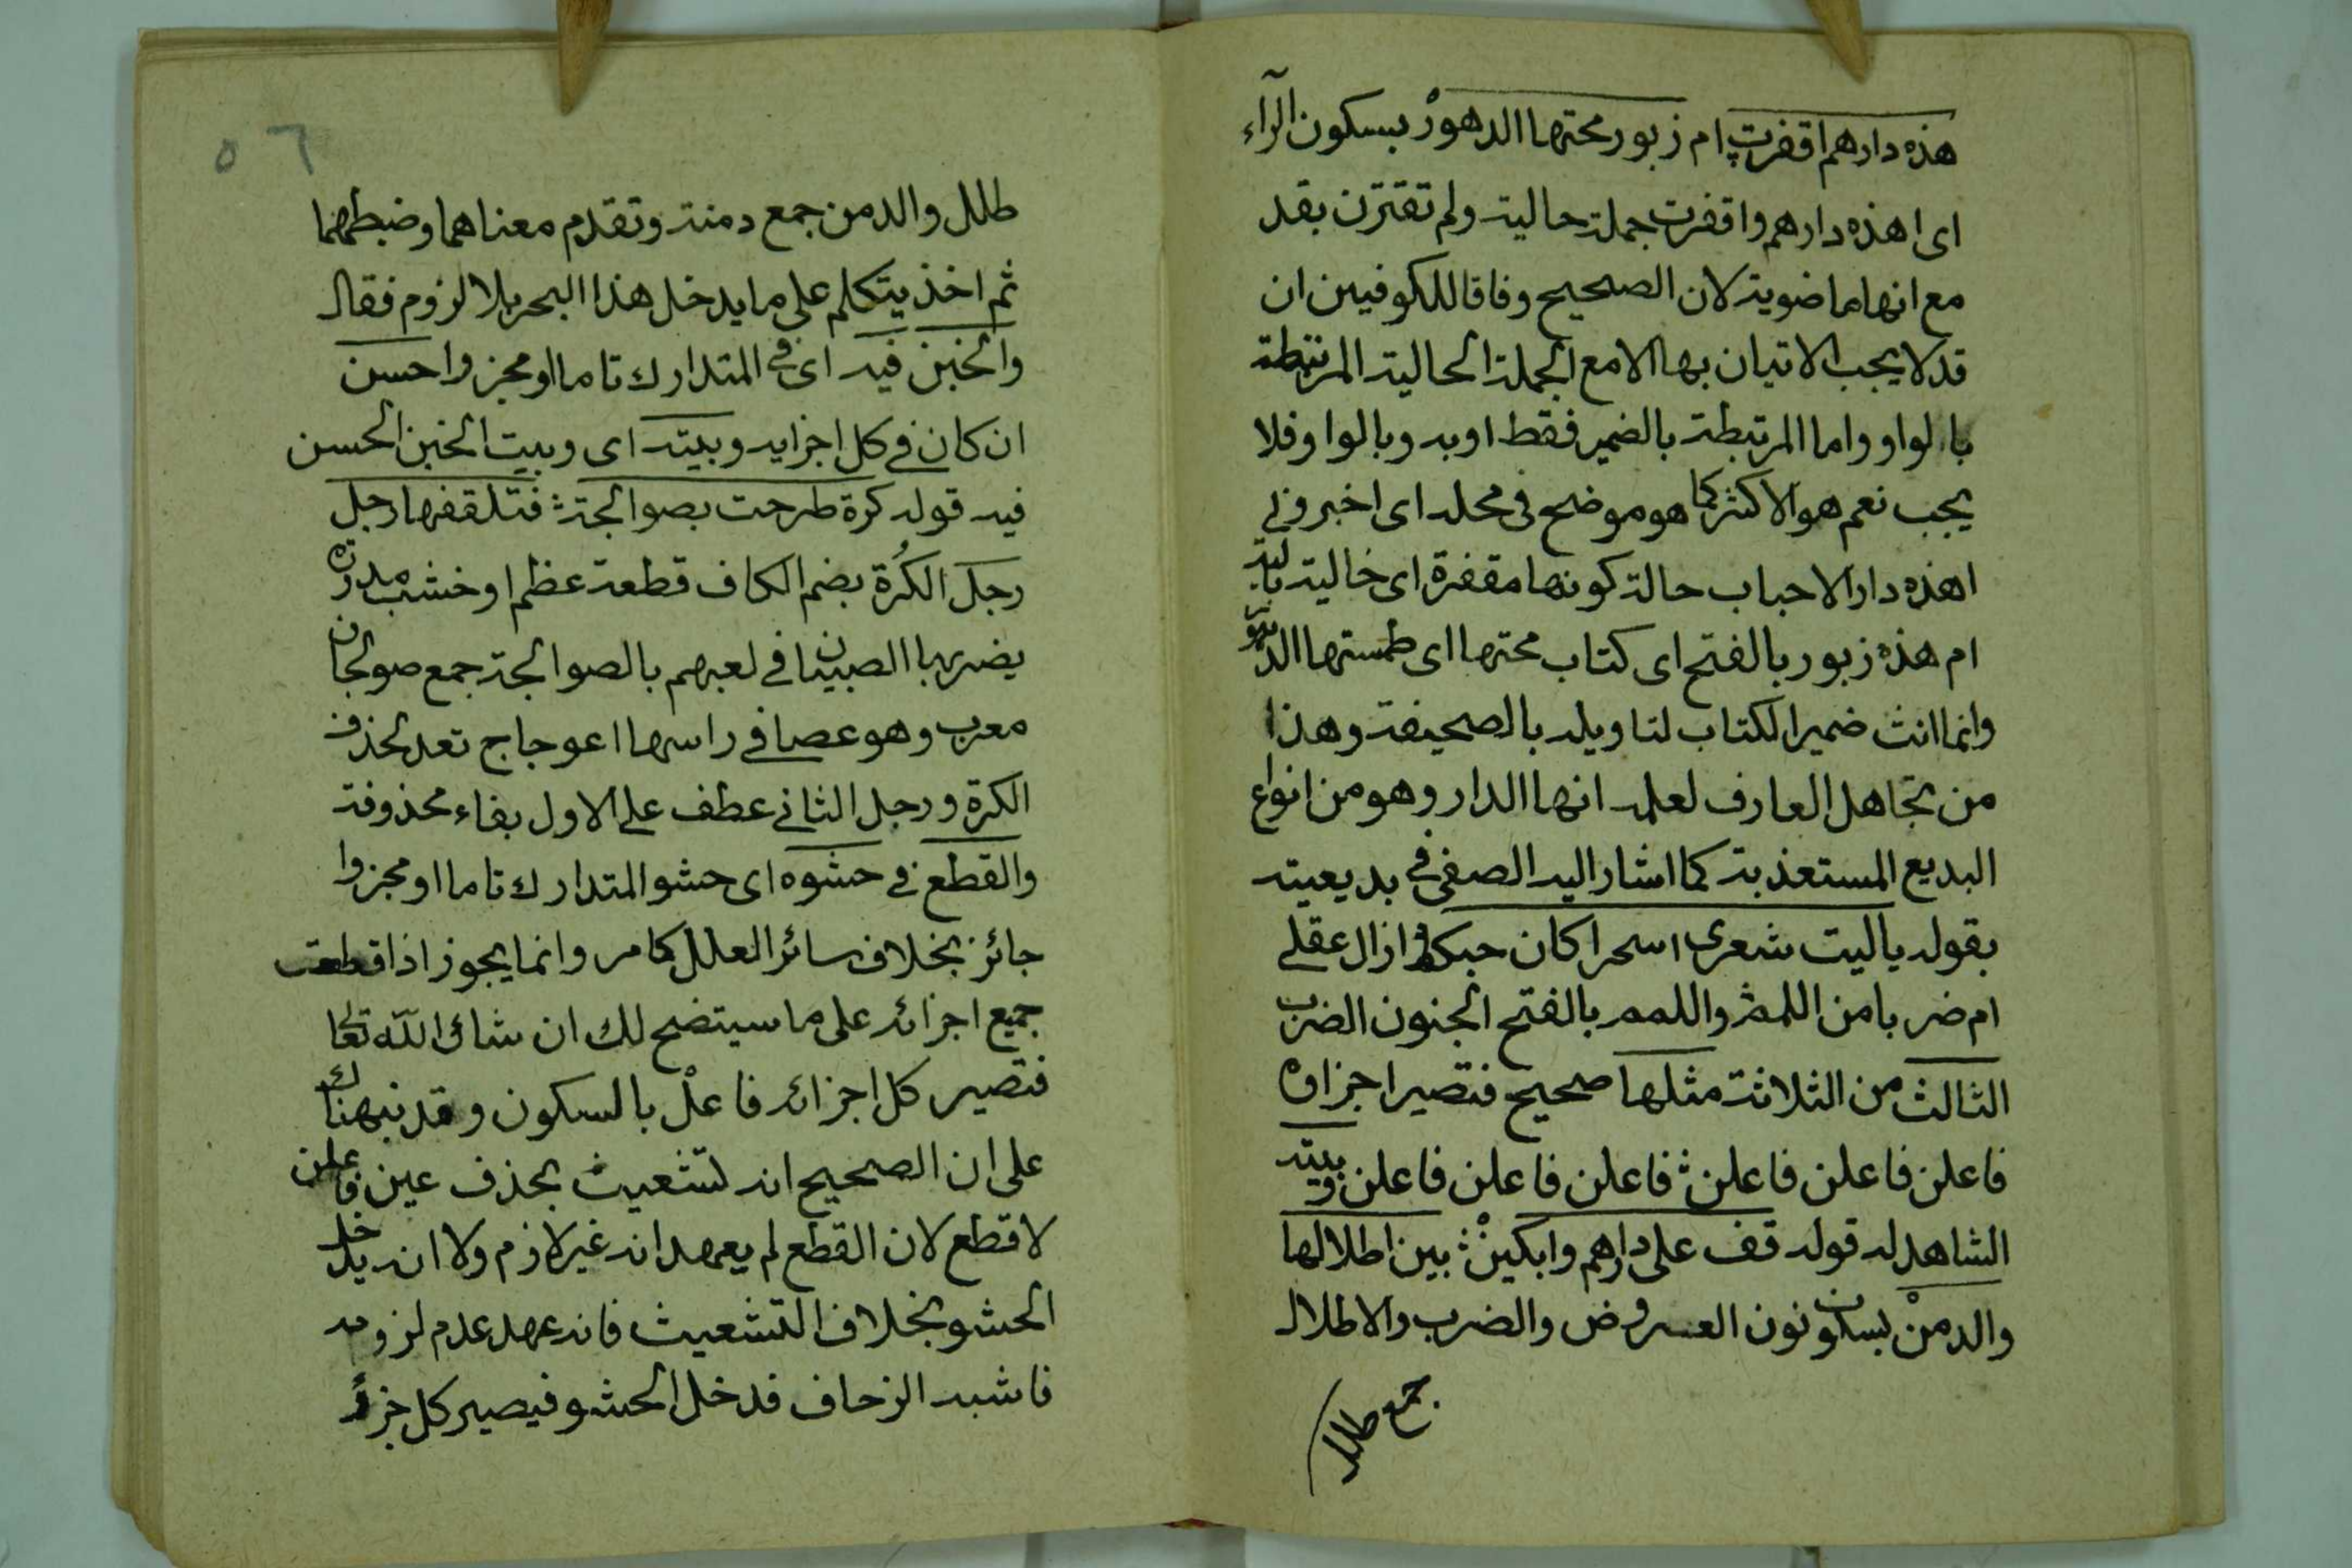 هذه دارهم اقفرت ام زبور محتها الدهورْ بسكون الرآء
اى اهذه دارهم واقفرت جملة حالية ولم تقترن بقد
مع انها ماضوية لان الصحيح وفاقا للكوفيين ان
قد لا يجب الاتيان بها الا مع الجملة الحالية المرتبطة
بالواو واما المرتبطة بالضمير فقط او به وبالواو فلا
يجب نعم هو الاكثر كما هو موضح فى محله اى اخبرونى
اهذه دار الاحباب حالة كونها مقفرة اى خالية بالية
ام هذه زبور بالفتح اى كتاب محتها اى طمستها الدهور
وانما انث ضمير الكتاب لتاويله بالصحيفة وهذا
من تجاهل العارف لعلمه انها الدار وهو من انواع
البديع المستعذبة كما اشار اليه الصفى فى بديعيته
بقوله ياليت شعرى اسحرا كان حبكم ازال عقلى
ام ضربا من اللمم واللمم بالفتح الجنون الضرب
الثالث من الثلاثة مثلها صحيح فتصير اجزاه
فاعلن فاعلن فاعلن فاعلن فاعلن فاعلن وبيته
الشاهد له قوله قف على دارهم وابكينْ بين اطلالها
والدمنْ بسكون نون العروض والضرب والاطلال
جمع طلل
٥٦
طلل والدمن جمع دمنة وتقدم معناهما وضبطهما
ثم اخذ يتكلم على ما يدخل هذا البحر بلا لزوم فقال
والخبن فيه اى فى المتدارك تاما او مجزوا حسن
ان كان فى كل اجزايه وبيته اى وبيت الخبن الحسن
فيه قوله كرة طرحت بصوالجة فتلقفها رجل
رجل الكُرة بضم الكاف قطعة عظم او خشب مدورة
يضربها الصبيان فى لعبهم بالصوالجة جمع صولجان
معرب وهو عصا فى راسها اعوجاج تعد لحذف
الكرة ورجل الثانى عطف على الاول بفاء محذوفة
والقطع فى حشوه اى حشو المتدارك تاما او مجزوا
جائز بخلاف سائر العلل كما مر وانما يجوز اذا قطعت
جميع اجزائه على ما سيتضح لك ان شاء الله تعالى
فتصير كل اجزائه فاعلْ بالسكون وقد نبهناك
على ان الصحيح انه تشعيث بحذف عين فاعلن
لا قطع لان القطع لم يعهد انه غير لازم ولا انه يدخل
الحشو بخلاف التشعيث فانه عهد عدم لزومه
فاشبه الزحاف فدخل الحشو فيصير كل جزء